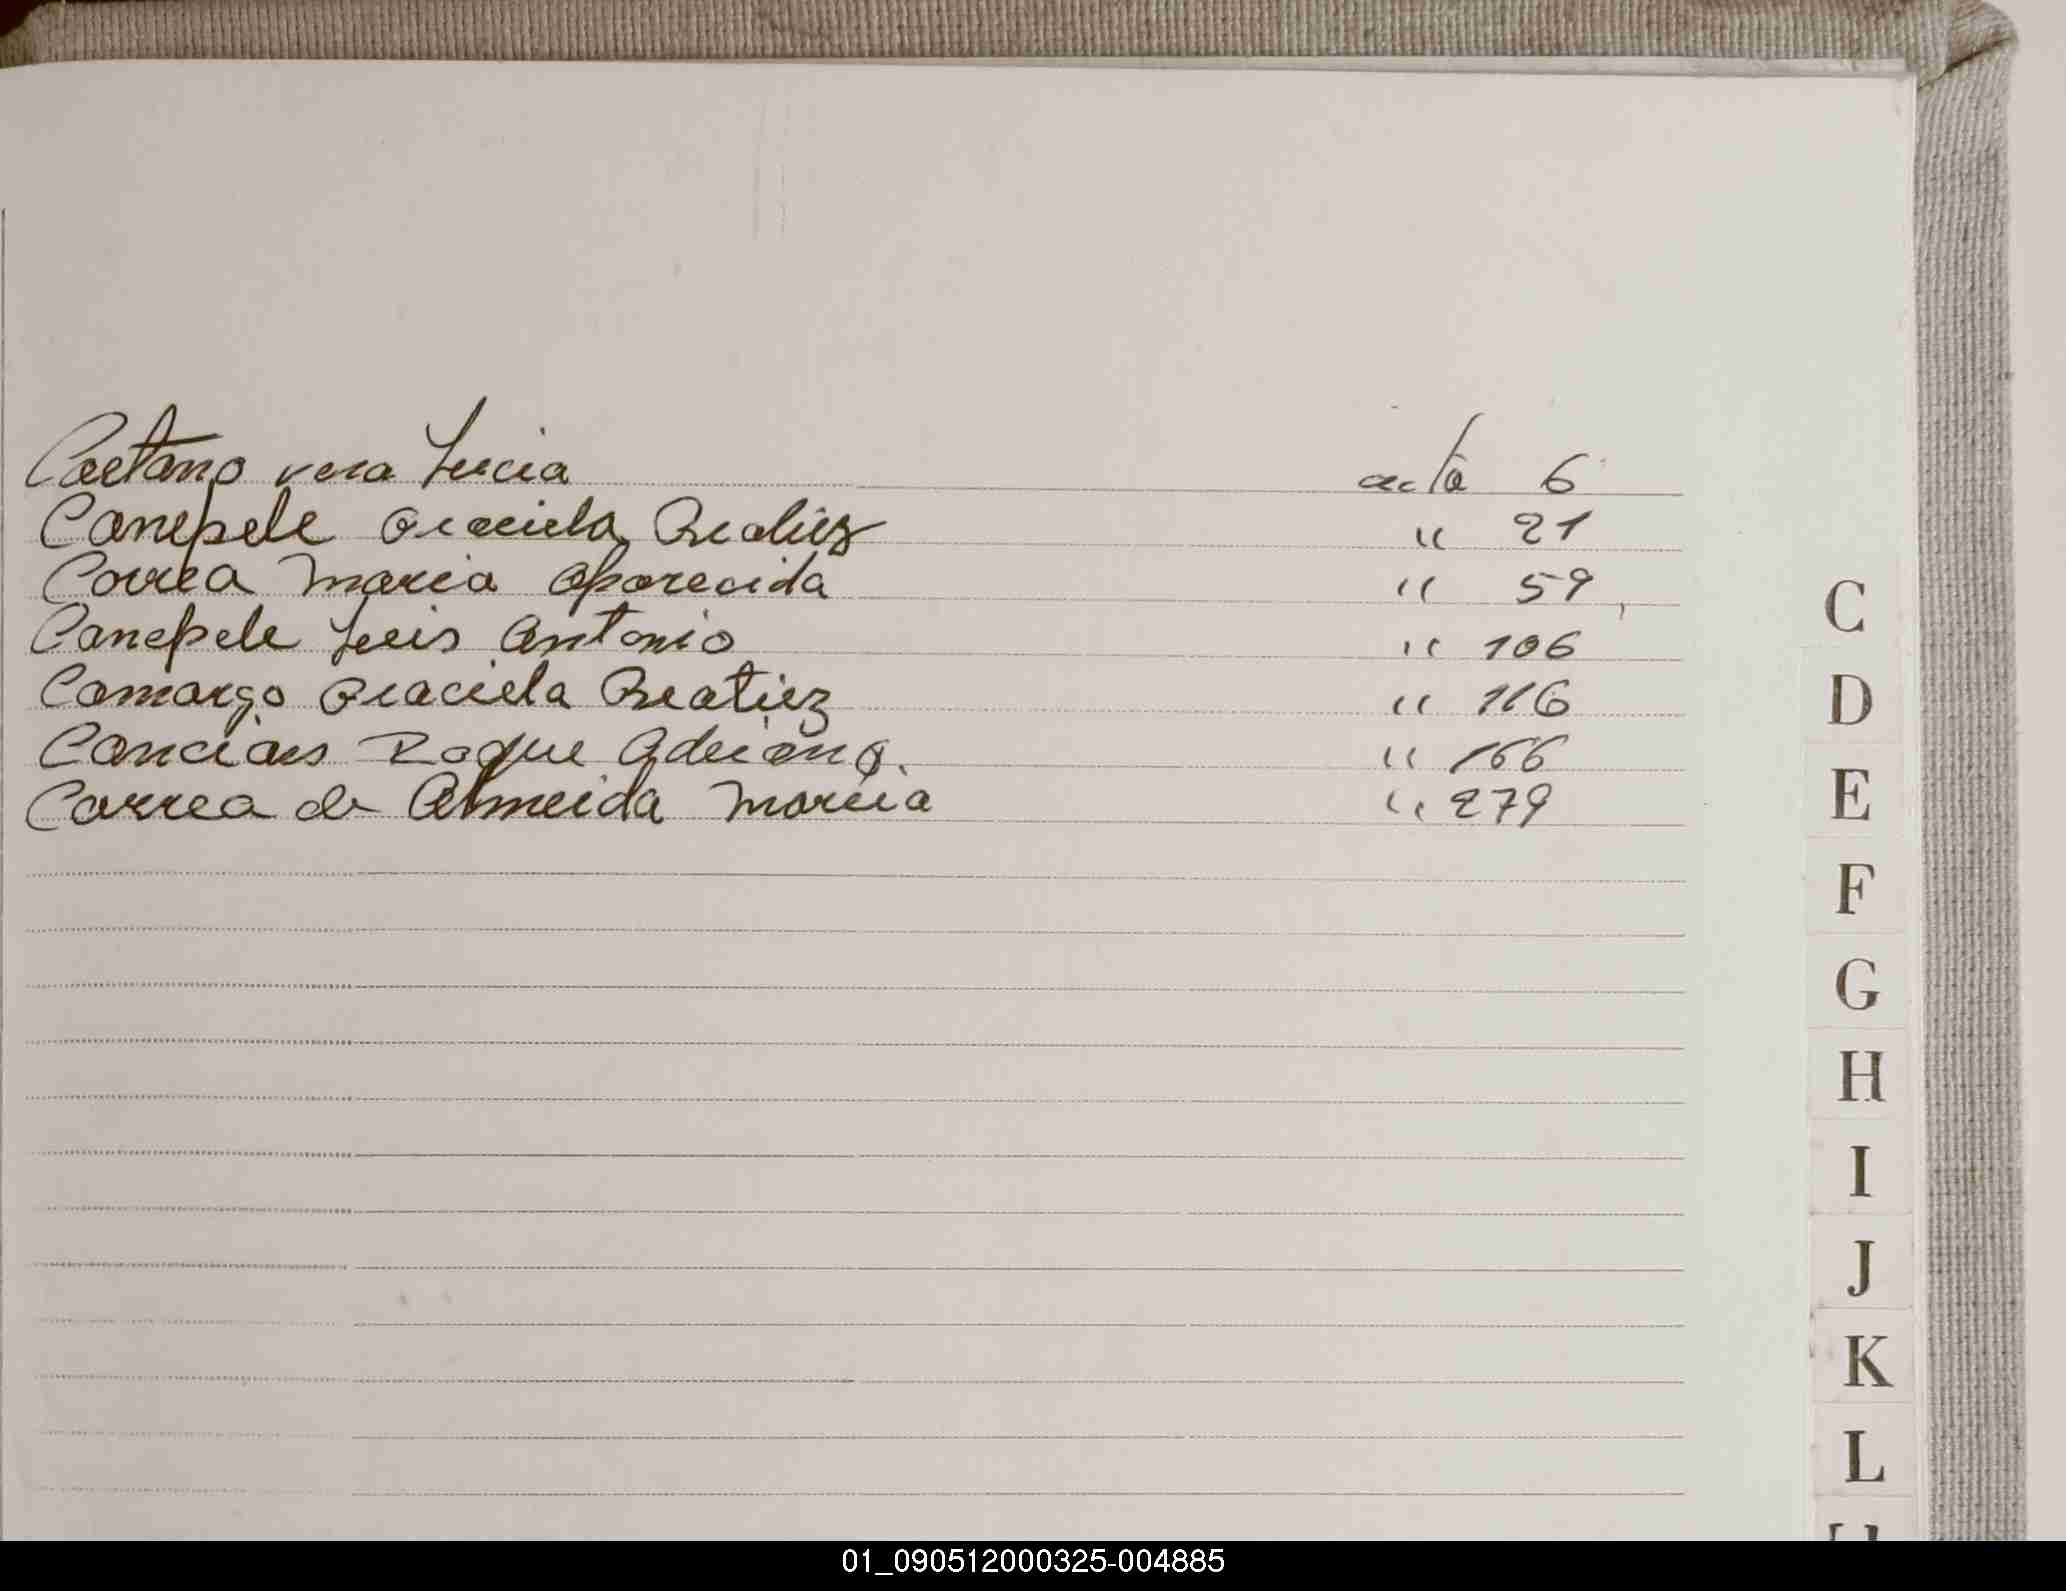 Caetano vera Lucia acta 6
Canepele Graciela Beatriz " 21
Correa Maria Aparecida " 59
Canepele Luis Antonio " 106
Camargo Graciela Beatriz " 116
Roque Adriano. " 166
Correa de Almeida Maria " 279
C
D
E
F
G
H
I
J
K
L
01_090512000325-004885